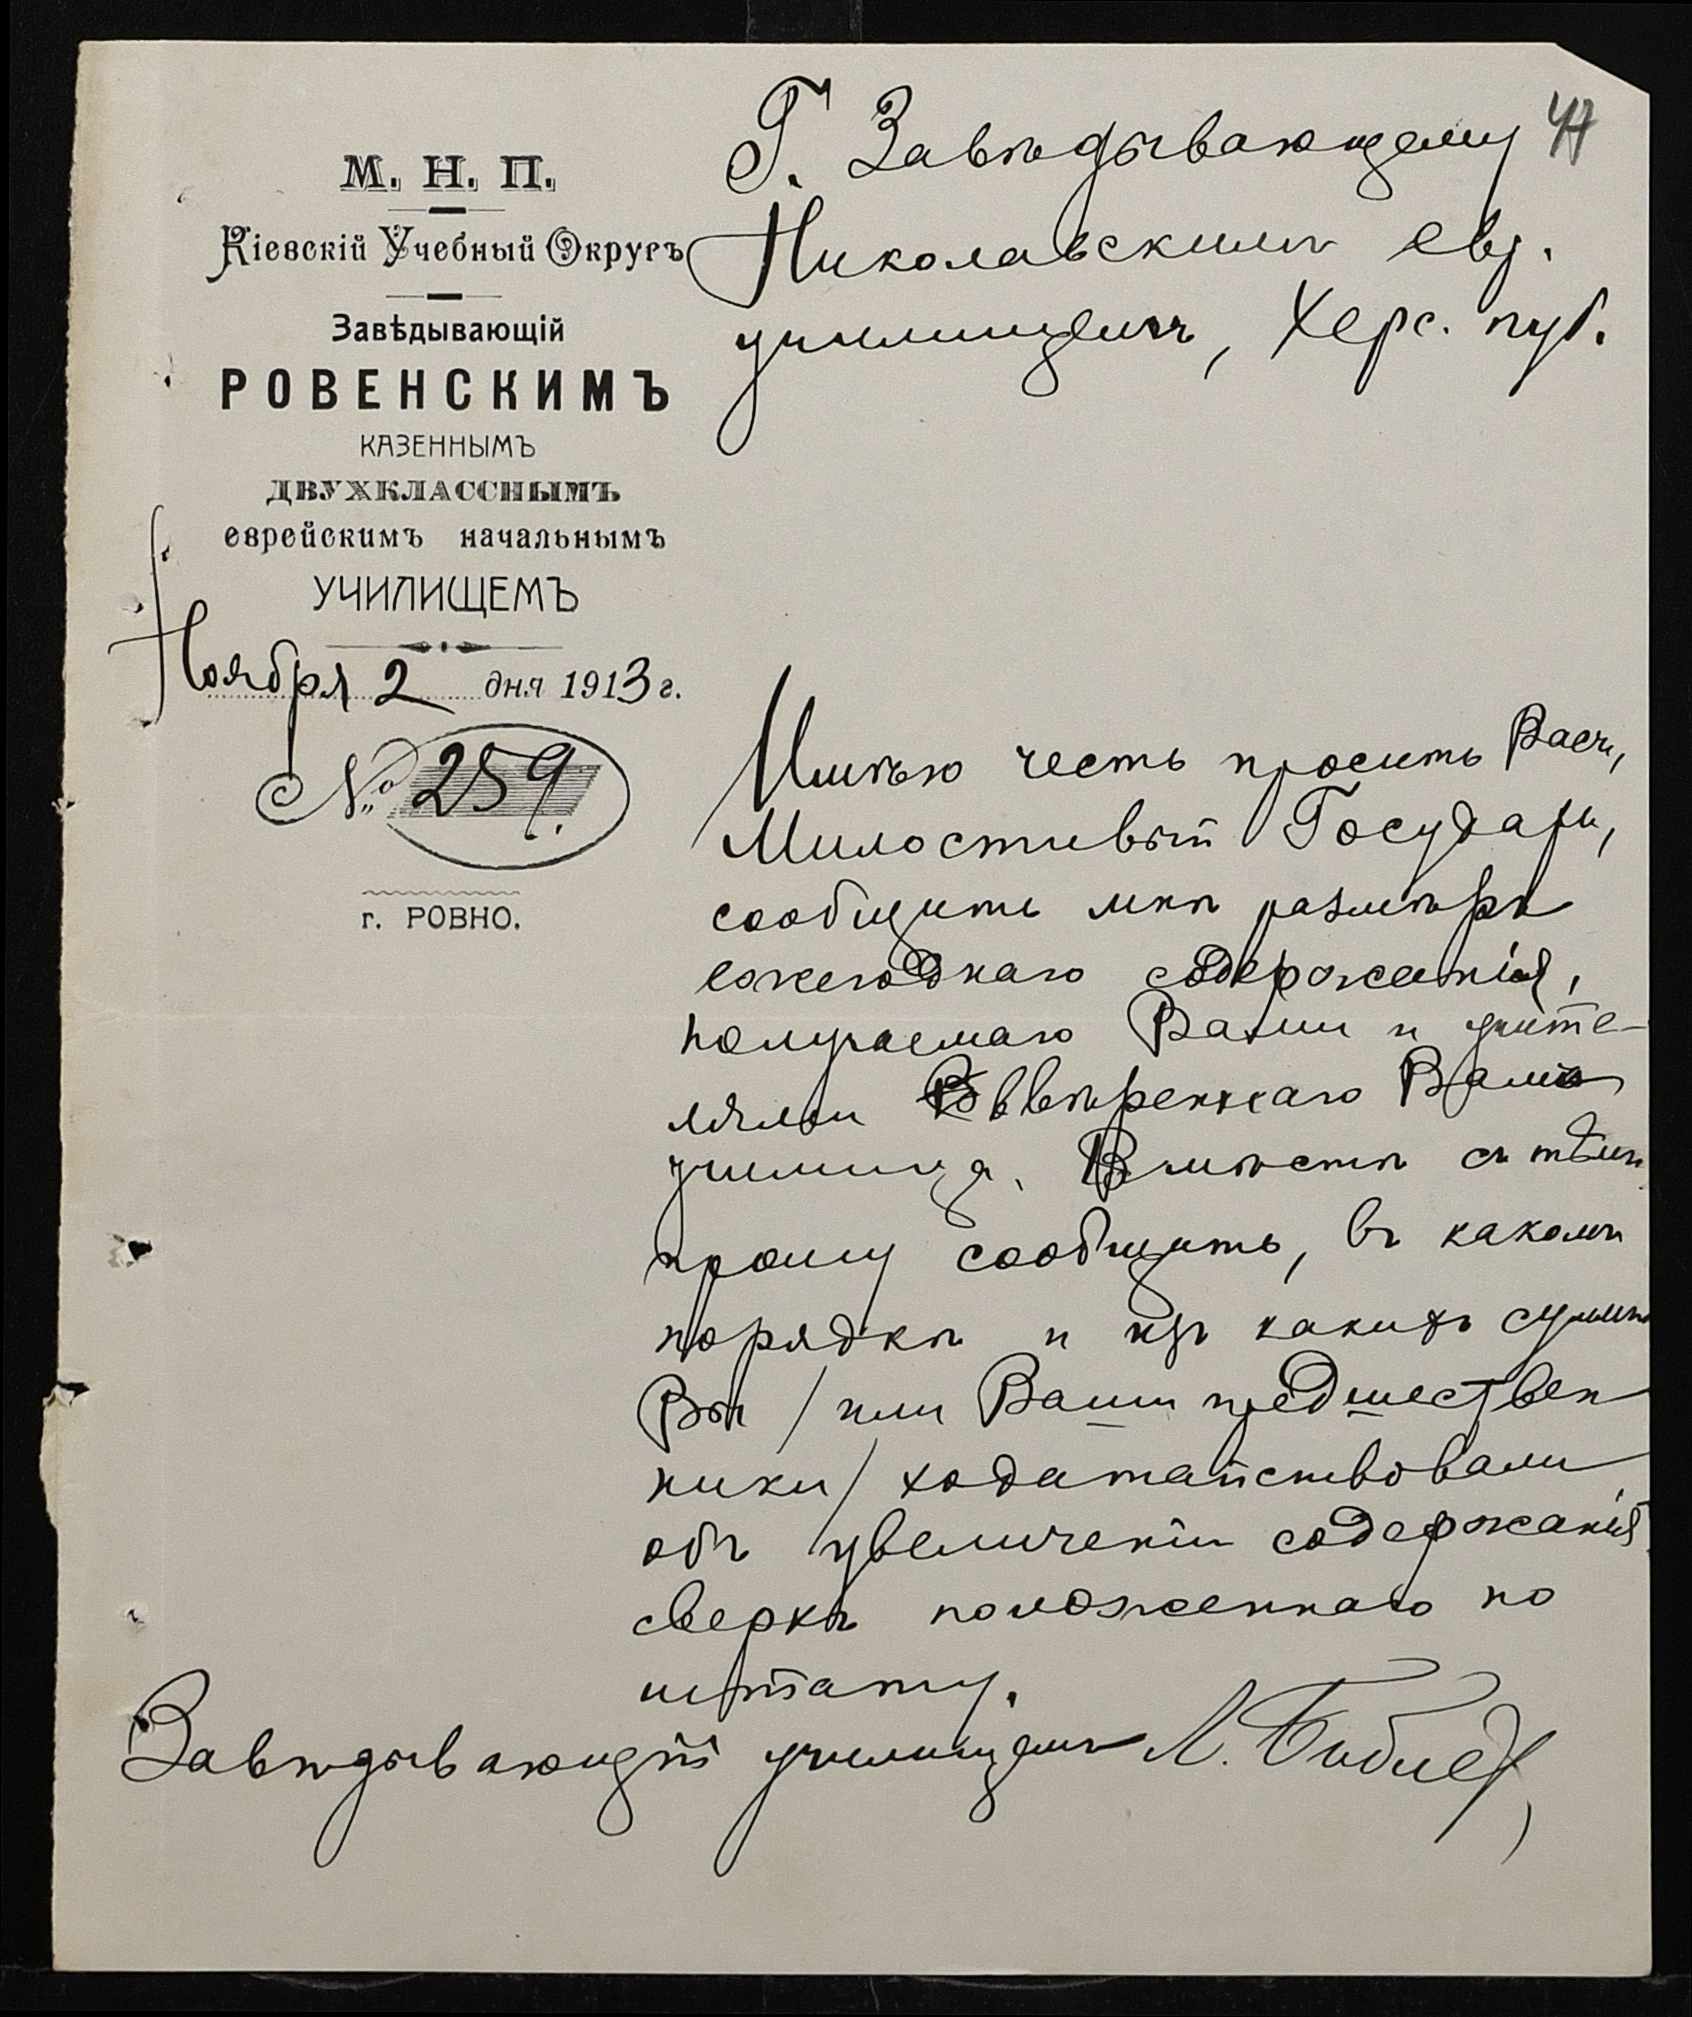 М. Н. П.
Кіевскій Учебный Округъ
Завѣдывающій
РОВЕНСКИМЪ
КАЗЕННЫМЪ
ДВУХКЛАССНЫМЪ
еврейскимъ начальнымъ
УЧИЛИЩЕМЪ
Ноября 2 дня 1913 г.
№ 259.
г. РОВНО.
Г. Завѣдывающему
Николаевскимъ евр.
училищемъ, Херс. губ.
Имѣю честь просить Васъ,
Милостивый Государь,
сообщить мнѣ размѣръ
ежегоднаго содержанія,
получаемаго Вами и учите-
лями ввѣреннаго Вамъ
училища. Вмѣстѣ съ тѣмъ
прошу сообщить, въ какомъ
порядкѣ и изъ какихъ суммъ
Вы /или Ваши предшествен
ники/ ходатайствовали
объ увеличеніи содержанія
сверхъ положеннаго по
штату.
Завѣдывающій училищемъ Л.